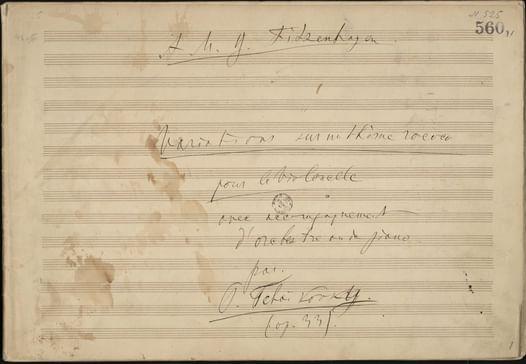 N 525
560
A M. G. Fitzenhagen
Variations sur un thème rococo
pour le Violoncelle
avec accompagnement
d'orchestre ou de piano
par
P. Tchaikovsky.
(op. 33).
1